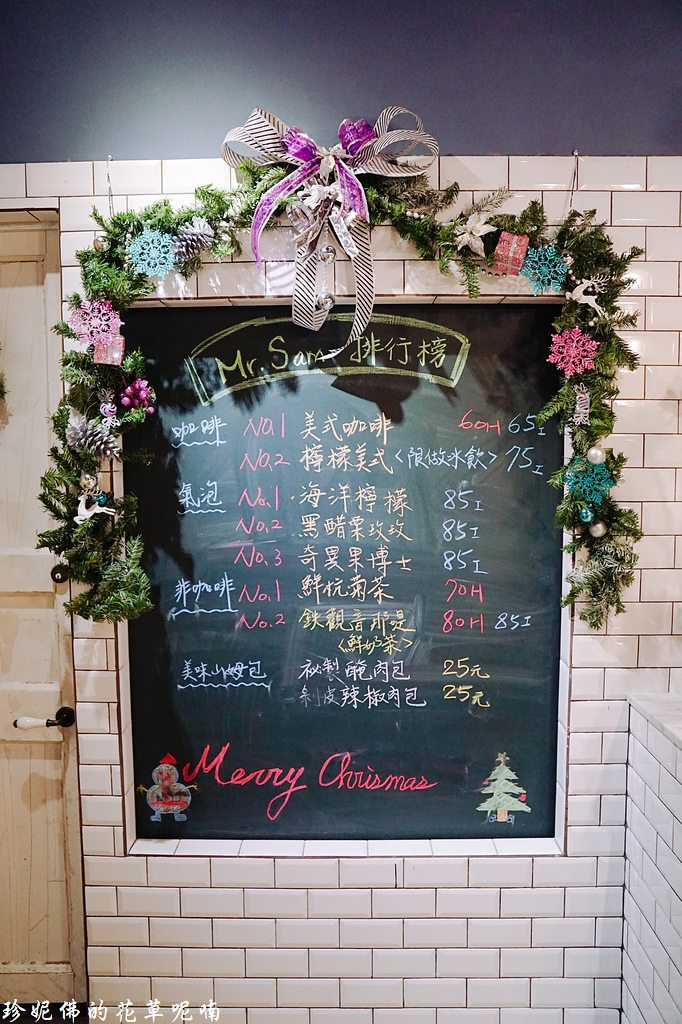 Mr. Sam 排行榜
咖啡 No.1 美式咖啡 60H 65I
No.2 檸檬美式<限做冰飲> 75I
氣泡 No.1 海洋檸檬 85I
No.2 黑醋栗玫玫 85I
No.3 奇異果博士 85I
非咖啡 No.1 鮮杭菊茶 70H
No.2 鉄觀音那堤 80H 85I
<鮮奶茶>
美味山姆包 祕製醃肉包 25元
剝皮辣椒肉包 25元
Merry Chrismas
珍妮佛的花草呢喃